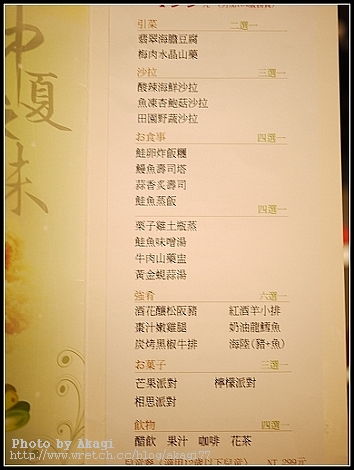 引菜 二選一
翡翠海膽豆腐
梅肉水晶山藥
沙拉 三選一
酸辣海鮮沙拉
魚凍杏鮑菇沙拉
田園野蔬沙拉
お食事 四選一
鮭卵炸飯糰
鰻魚壽司塔
蒜香炙壽司
鮭魚蒸飯
四選一
栗子雞土瓶蒸
鮭魚味噌湯
牛肉山藥盅
黃金蜆蒜湯
強肴 六選一
酒花釀松阪豬 紅酒羊小排
棗汁嫩雞腿 奶油龍鱈魚
炭烤黑椒牛排 海陸(豬+魚)
お菓子 三選一
芒果派對 檸檬派對
相思派對
飲物 四選一
醋飲 果汁 咖啡 花茶
兒童餐 (適用12歲以下兒童) NT 299元
夏
味
Photo by Akagi
http://www.wretch.cc/blog/akagi77